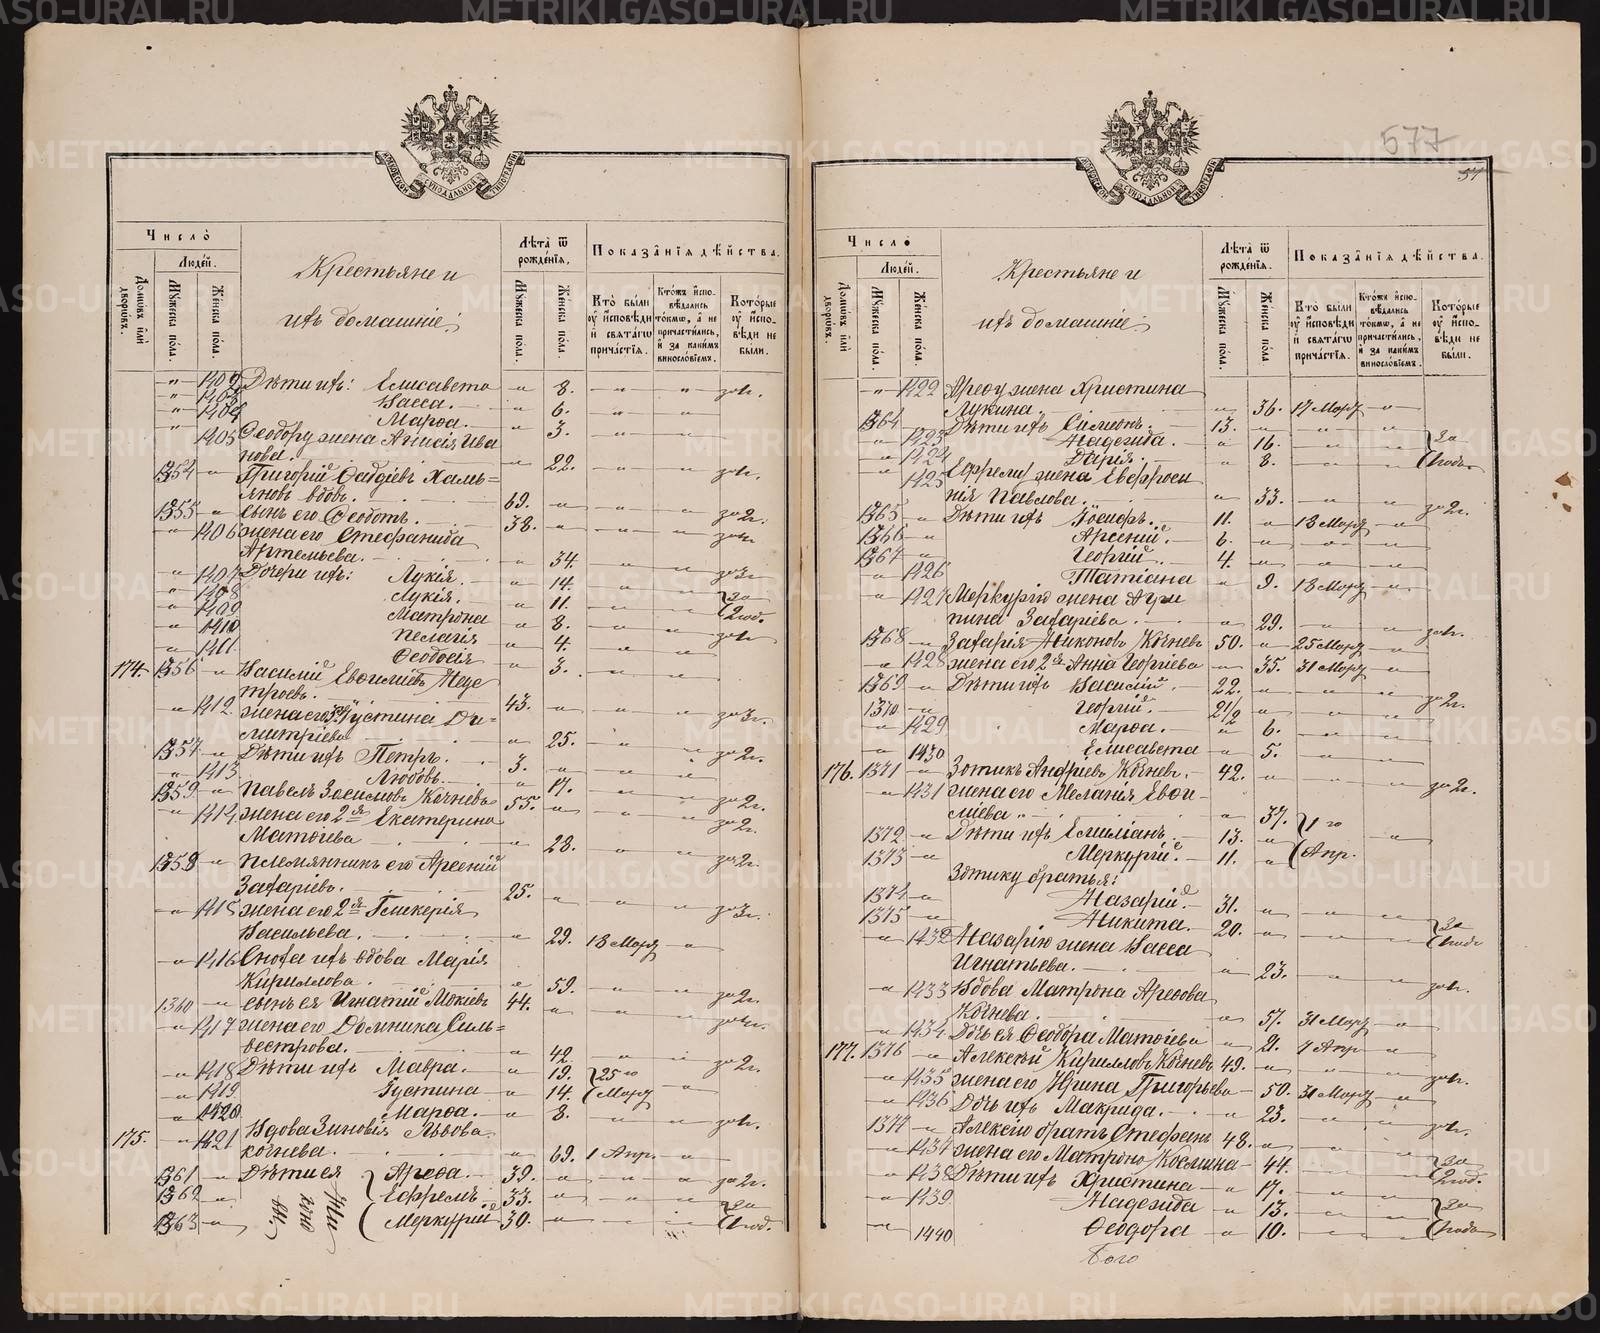 METRIKI.GASO-URAL.RU
Число̀
Людéй.
Домѡвъ и҆лѝ дворѡвъ.
Мꙋ́жеска по́ла.
Же́нска по́ла.
Крестьяне и
ихъ домашніе;
Лѣта̀ ѿ рожде́нїѧ.
Мꙋ́жеска по́ла.
Же́нска по́ла.
Показа̑нїѧ дѣ́йства.
Кто̀ бы́ли ᲂу҆ и҆сповѣди и҆ свѧта́гѡ прича́стїѧ.
Кто́жъ и҆спо-вѣдались то́кмѡ, а҆ не причасти́лись, и҆ за каки́мъ винослові́емъ.
Кото́рые ᲂу҆ и҆спо-вѣди не бы́ли.
" 1402 Дѣти ихъ: Елисавета " 8. " " за 1 г.
" 1403 Васса. " 6. " "
" 1404 Марѳа. " 3. " "
" 1405 Ѳеодору жена Анисія Ива
нова. " 22. " " за 1 г.
1354 " Григорій Ѳаддѣевъ Халь=
яновъ вдовъ. 69. " " " за 2 г.
1355 " сынъ его Ѳеодотъ. 38. " " " за 1 г.
" 1406 жена его Стефанида
Артемьева. " 34. " " за 3 г.
" 1407 Дочери ихъ: Лукія. " 14. " "
" 1408 Лукія. " 11. " " за
" 1409 Матрона " 8. " " 2 год.
" 1410 Пелагія " 4. " " за 1 г.
" 1411 Ѳеодосія " 3. " "
174. 1356 " Василій Евѳиміевъ
43. " " " за 3 г.
" 1412. жена его Іустина Ди=
митріева " 25. " " за 2 г.
1357 " Дѣти ихъ Петръ. 3. " " "
" 1413. Любовь. " 17. " " за 2 г.
1358. " Павелъ Зосимовъ Кочневъ 55. " " " за 2 г.
" 1414. жена его 2я Екатерина
Матѳіева " 28. " " за 2 г.
1359 " племянникъ его Арсеній
Захаріевъ. 25. " " " за 3 г.
" 1415 жена его 2я Гликерія
Васильева. " 29. 18 Марта "
" 1416 Сноха ихъ вдова Марія
Кириллова. " 59. " " за 2 г.
1360 " сынъ ея Игнатій Мокіевъ 44. " " " за 1 г.
" 1417 жена его Домника Силь=
вестрова. " 42. " " за 2 г.
" 1418 Дѣти ихъ Мавра. " 19. 25 го
" 1419 Іустина " 14. Марта "
" 1420 Марѳа. " 8. " " за 1 г.
175. " 1421. Вдова Зиновія Львова
кочнева. " 69. 1 Апр. "
1361 " Дѣти ея Ареѳа. 39. " " " за 2 г.
1362 " Ефремъ 33. " " " за
1363 " Меркурій 30. " " " 1 год.
577
57
Число̀
Людéй.
Домѡвъ и҆лѝ дворѡвъ.
Мꙋ́жеска по́ла.
Же́нска по́ла.
Крестьяне и
ихъ домашніе;
Лѣта̀ ѿ рожде́нїѧ.
Мꙋ́жеска по́ла.
Же́нска по́ла.
Показа̑нїѧ дѣ́йства.
Кто̀ бы́ли ᲂу҆ и҆сповѣди и҆ свѧта́гѡ прича́стїѧ.
Кто́жъ и҆спо-вѣдались то́кмѡ, а҆ не причасти́лись, и҆ за каки́мъ винослові́емъ.
Кото́рые ᲂу҆ и҆спо-вѣди не бы́ли.
" 1422 Ареѳу жена Христина
Лукина. " 36. 17 Марта "
1364 Дѣти ихъ Симеонъ. 13. " " "
" 1423 Надежда. " 16. " " за
" 1424 Дарія. " 8. " " 1 годъ
" 1425 Ефрему жена Евфроси
нія Павлова. " 33. " " за 2 г.
1365 " Дѣти ихъ Іосифъ. 11. " 18 Марта "
1366 " Арсеній. 6. " " "
1367 " Георгій. 4. " " "
" 1426 Татіана " 9. 18 Марта "
" 1427 Меркурію жена Агри
пина Захаріева. " 29. " " за 1 г.
1368 " Захарія Никоновъ Кочневъ 50. " 25 Марта "
" 1428 жена его 2я Анна Георгіева " 35. 31 Марта "
1369 " Дѣти ихъ Василій. 22. " " " за 2 г.
1370 " Георгій. 2 1/2 " " "
" 1429 Марѳа. " 6. " "
" 1430 Елисавета " 5. " "
176. 1371 " Зотикъ Андріевъ Кочневъ. 42. " " " за 2 г.
" 1431 жена его Меланія Евѳи-
міева " 37. 1 го
1372 " Дѣти ихъ Емиліанъ. 13. " "
1373 " Меркурій. 11. " Апр.
Зотику братья:
1374 " Назарій. 31. " " " за
1375 " Никита. 20. " " " 1 годъ
" 1432 Назарію жена Васса
Игнатьева. " 23. " " за 1 г.
" 1433 Вдова Матрона Ареѳова
Кочнева. " 57. 31 Марта "
" 1434 Дочь ея Ѳеодора Матѳіева " 21. 1 Апр "
177. 1376 " Алексѣй Кирилловъ Кочневъ 49. " " " за 1 г.
" 1435 жена его Ирина Григорьева " 50. 31 Марта "
" 1436 Дочь ихъ Макрида. " 23. " " за 1 г.
1377 " Алексію братъ Стефанъ 48. " " "
" 1437 жена его Матрона Косьмина " 44. " " за
" 1438 Дѣти ихъ Христина " 17. " " 2 год.
" 1439 Надежда " 13. " " за
" 1440 Ѳеодора " 10. " " 1 годъ